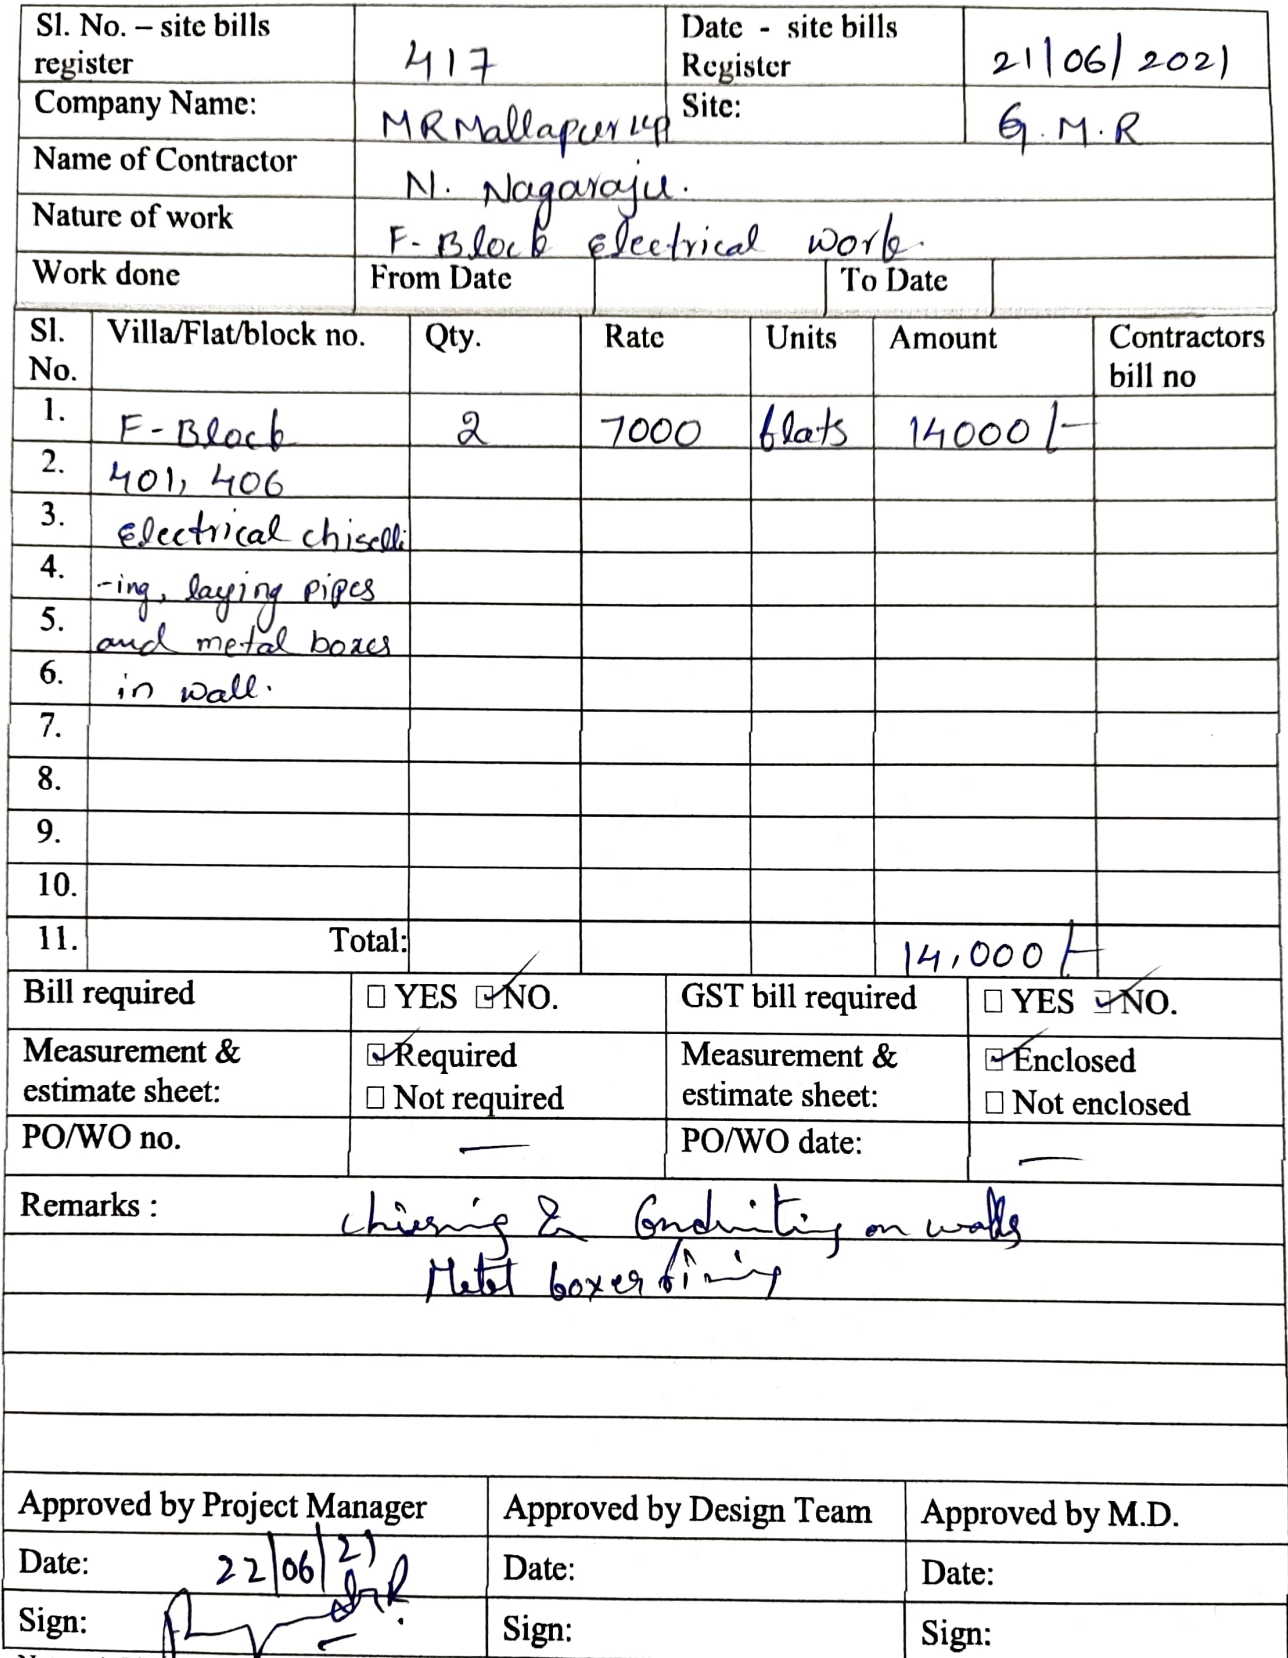 Sl. No. – site bills register 417 Date - site bills Register 21/06/2021
Company Name: MR Mallapur LLP Site: G.M.R
Name of Contractor N. Nagaraju.
Nature of work F-Block Electrical work.
Work done From Date To Date
Sl. No. Villa/Flat/block no. Qty. Rate Units Amount Contractors bill no
1. F-Block 2 7000 flats 14000/-
2. 401, 406
3. Electrical chiselli
4. -ing, laying pipes
5. and metal boxes
6. in wall.
7.
8.
9.
10.
11. Total: 14,000/-
Bill required ☐ YES ☑ NO. GST bill required ☐ YES ☑ NO.
Measurement & estimate sheet: ☑ Required ☐ Not required Measurement & estimate sheet: ☑ Enclosed ☐ Not enclosed
PO/WO no. — PO/WO date: —
Remarks : & Conduiting on walls
Metal boxes
Approved by Project Manager Approved by Design Team Approved by M.D.
Date: 22/06/21 Date: Date:
Sign: Sign: Sign: